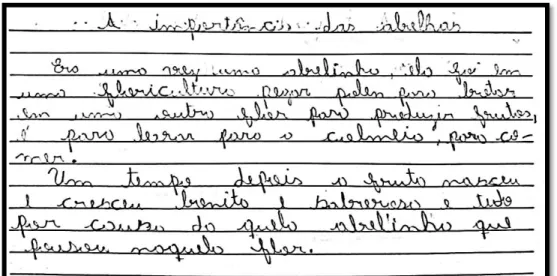 A importância das abelhas
Era uma vez uma abelinha, ela foi em
uma floricultura pegar polen para botar
em uma outra flor para produzir frutos,
e para levar para a colmeia, para co-
mer.
Um tempo depois o fruto nasceu
e cresceu bonito e saboroso e tudo
por causa da quela abel'inha que
pousou naquela flor.